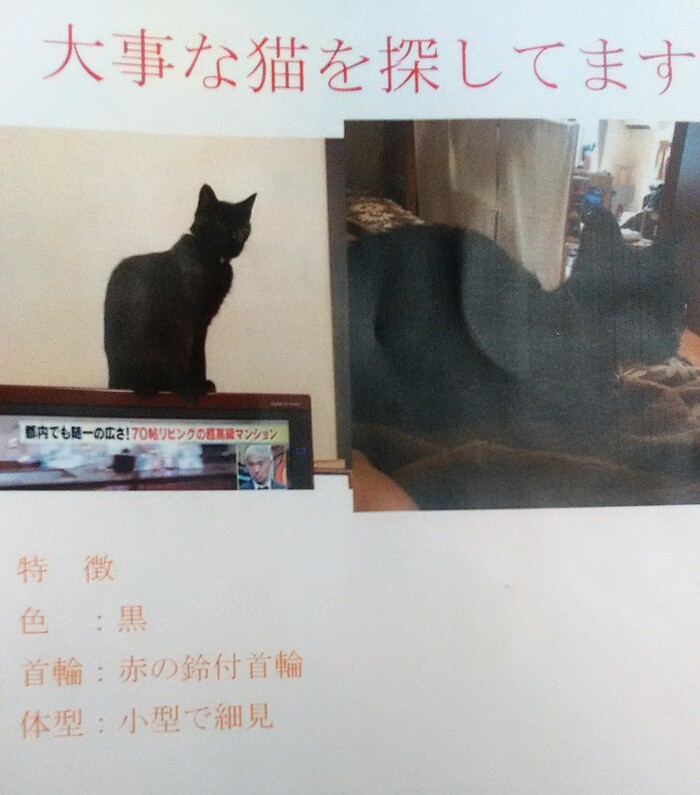 大事な猫を探してます
都内でも随一の広さ!70帖リビングの超高級マンション
特 徴
色 :黒
首輪:赤の鈴付首輪
体型:小型で細見